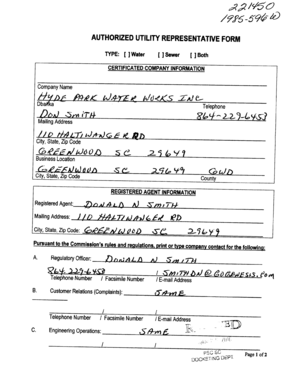 221450
1985-596W
AUTHORIZED UTILITY REPRESENTATIVE FORM
TYPE: [ ] Water [ ] Sewer [ ] Both
CERTIFICATED COMPANY INFORMATION
Company Name
HYDE PARK WATER WORKS INC
Dba/fka Telephone
DON SMITH 864-229-6453
Mailing Address
110 HALTIWANGER RD
City, State, Zip Code
GREENWOOD SC 29649
Business Location
GREENWOOD SC 29649 GWD
City, State, Zip Code County
REGISTERED AGENT INFORMATION
Registered Agent: DONALD N SMITH
Mailing Address: 110 HALTIWANGER RD
City, State, Zip Code: GREENWOOD SC 29649
Pursuant to the Commission's rules and regulations, print or type company contact for the following:
A. Regulatory Officer: DONALD N SMITH
864-229-6453 / / SMITHDN@GOGENESIS.COM
Telephone Number / Facsimile Number / E-mail Address
B. Customer Relations (Complaints): SAME
/ /
Telephone Number / Facsimile Number / E-mail Address
C. Engineering Operations: SAME
/ /
PSC SC
DOCKETING DEPT
Page 1 of 2